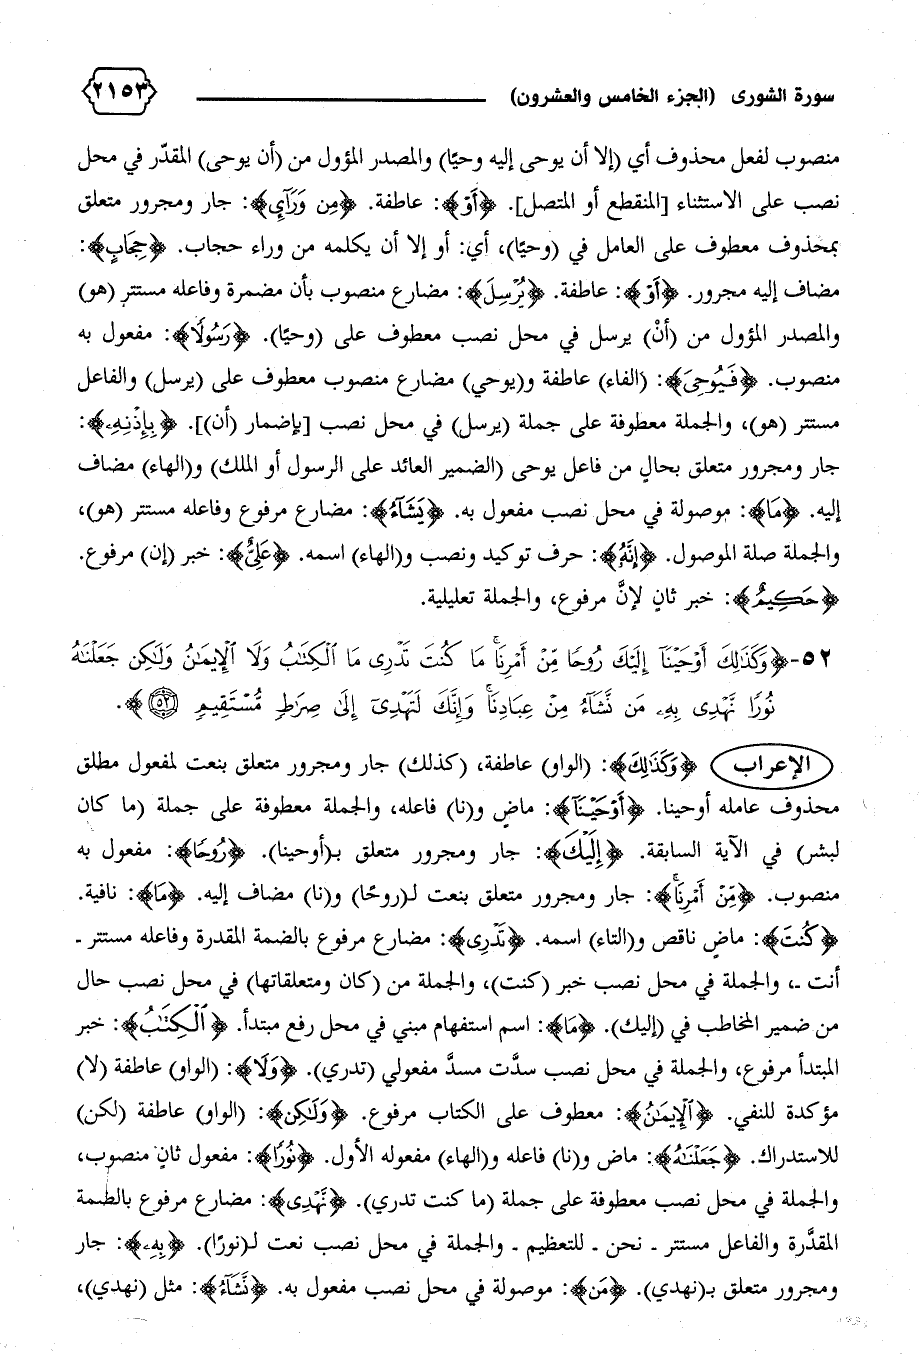 سورة الشورى (الجزء الخامس والعشرون) ٢١٥٣
منصوب لفعل محذوف أي (إلا أن يوحى إليه وحيًا) والمصدر المؤول من (أن يوحى) المقدّر في محل
نصب على الاستثناء [المنقطع أو المتصل]. ﴿أَوْ﴾: عاطفة. ﴿مِن وَرَآيِ﴾: جار ومجرور متعلق
بمحذوف معطوف على العامل في (وحيًا)، أي: أو إلا أن يكلمه من وراء حجاب. ﴿حِجَابٍ﴾:
مضاف إليه مجرور. ﴿أَوْ﴾: عاطفة. ﴿يُرْسِلَ﴾: مضارع منصوب بأن مضمرة وفاعله مستتر (هو)
والمصدر المؤول من (أنْ) يرسل في محل نصب معطوف على (وحيًا). ﴿رَسُولًا﴾: مفعول به
منصوب. ﴿فَيُوحِىَ﴾: (الفاء) عاطفة و(يوحي) مضارع منصوب معطوف على (يرسل) والفاعل
مستتر (هو)، والجملة معطوفة على جملة (يرسل) في محل نصب [بإضمار (أن)]. ﴿بِإِذْنِهِۦ﴾:
جار ومجرور متعلق بحالٍ من فاعل يوحى (الضمير العائد على الرسول أو الملك) و(الهاء) مضاف
إليه. ﴿مَا﴾: موصولة في محل نصب مفعول به. ﴿يَشَآءُ﴾: مضارع مرفوع وفاعله مستتر (هو)،
والجملة صلة الموصول. ﴿إِنَّهُۥ﴾: حرف توكيد ونصب و(الهاء) اسمه. ﴿عَلِىٌّ﴾: خبر (إن) مرفوع.
﴿حَكِيمٌ﴾: خبر ثانٍ لإنَّ مرفوع، والجملة تعليلية.
٥٢-﴿وَكَذَٰلِكَ أَوْحَيْنَآ إِلَيْكَ رُوحًا مِّنْ أَمْرِنَا ۚ مَا كُنتَ تَدْرِى مَا ٱلْكِتَٰبُ وَلَا ٱلْإِيمَٰنُ وَلَٰكِن جَعَلْنَٰهُ
نُورًا نَّهْدِى بِهِۦ مَن نَّشَآءُ مِنْ عِبَادِنَا ۚ وَإِنَّكَ لَتَهْدِىٓ إِلَىٰ صِرَٰطٍ مُّسْتَقِيمٍ ۝٥٢﴾.
الإعراب ﴿وَكَذَٰلِكَ﴾: (الواو) عاطفة، (كذلك) جار ومجرور متعلق بنعت لمفعول مطلق
محذوف عامله أوحينا. ﴿أَوْحَيْنَآ﴾: ماضٍ و(نا) فاعله، والجملة معطوفة على جملة (ما كان
لبشر) في الآية السابقة. ﴿إِلَيْكَ﴾: جار ومجرور متعلق بـ(أوحينا). ﴿رُوحًا﴾: مفعول به
منصوب. ﴿مِّنْ أَمْرِنَا ۚ﴾: جار ومجرور متعلق بنعت لـ(روحًا) و(نا) مضاف إليه. ﴿مَا﴾: نافية.
﴿كُنتَ﴾: ماضٍ ناقص و(التاء) اسمه. ﴿تَدْرِى﴾: مضارع مرفوع بالضمة المقدرة وفاعله مستتر ـ
أنت ـ، والجملة في محل نصب خبر (كنت)، والجملة من (كان ومتعلقاتها) في محل نصب حال
من ضمير المخاطب في (إليك). ﴿مَا﴾: اسم استفهام مبني في محل رفع مبتدأ. ﴿ٱلْكِتَٰبُ﴾: خبر
المبتدأ مرفوع، والجملة في محل نصب سدَّت مسدَّ مفعولي (تدري). ﴿وَلَا﴾: (الواو) عاطفة (لا)
مؤكدة للنفي. ﴿ٱلْإِيمَٰنُ﴾: معطوف على الكتاب مرفوع. ﴿وَلَٰكِن﴾: (الواو) عاطفة (لكن)
للاستدراك. ﴿جَعَلْنَٰهُ﴾: ماض و(نا) فاعله و(الهاء) مفعوله الأول. ﴿نُورًا﴾: مفعول ثانٍ منصوب،
والجملة في محل نصب معطوفة على جملة (ما كنت تدري). ﴿نَّهْدِى﴾: مضارع مرفوع بالضمة
المقدَّرة والفاعل مستتر ـ نحن ـ للتعظيم ـ والجملة في محل نصب نعت لـ(نورًا). ﴿بِهِۦ﴾: جار
ومجرور متعلق بـ(نهدي). ﴿مَن﴾: موصولة في محل نصب مفعول به. ﴿نَّشَآءُ﴾: مثل (نهدي)،